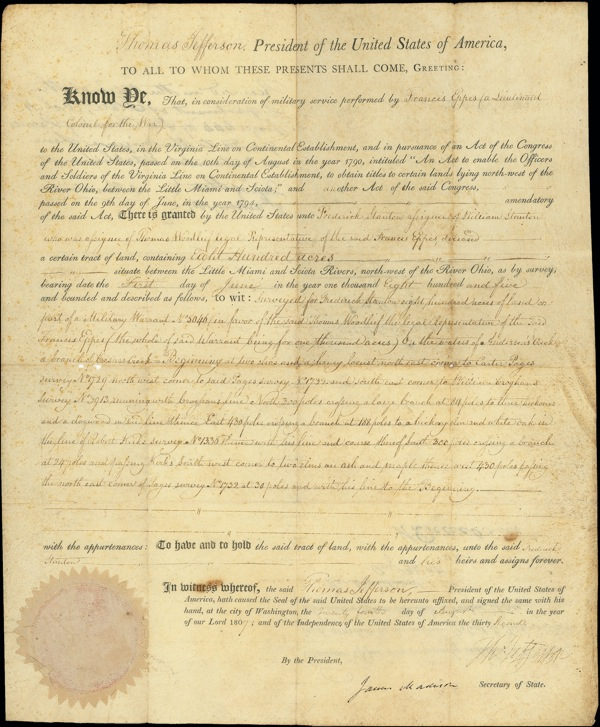 Thomas Jefferson, President of the United States of America,
TO ALL TO WHOM THESE PRESENTS SHALL COME, GREETING:
Know Ye, That, in consideration of military service performed by Francis Eppes (a Lieutenant
Colonel for the War)
to the United States, in the Virginia Line on Continental Establishment, and in pursuance of an Act of the Congress
of the United States, passed on the 10th day of August in the year 1790, intituled "An Act to enable the Officers
and Soldiers of the Virginia Line on Continental Establishment, to obtain titles to certain lands lying north-west of the
River Ohio, between the Little Miami and Sciota;" and another Act of the said Congress,
passed on the 9th day of June, in the year 1794, amendatory
of the said Act, There is granted by the United States unto Frederick Stanton assignee of William Stanton
who was assignee of Thomas Woodlief legal Representative of the said Francis Eppes deceased
a certain tract of land, containing Eight Hundred acres
situate between the Little Miami and Sciota Rivers, north-west of the River Ohio, as by survey,
bearing date the First day of June in the year one thousand Eight hundred and five
and bounded and described as follows, to wit: Surveyed for Frederick Stanton eight hundred acres of land on
part of a Military Warrant No 3040 in favor of the said Thomas Woodlief the legal Representative of the said
Francis Eppes (the whole of said Warrant being for one thousand acres) On the waters of Anderson's Creek
a branch of Caesars Creek Beginning at two elms and a honey locust north east corner to Carter Pages
survey No 1729 north west corner to said Pages survey No 1732 and south east corner to Broghans
survey No 3913 running with Broghans line North 300 poles crossing a large branch at 84 poles to three hickories
and a dogwood in said line thence East 430 poles crossing a branch at 166 poles to a hickory elm and white oak in
the line of Robert survey No 1336 thence with his line and course thereof South 300 poles crossing a branch
at 24 poles and passing South west corner to two elms an ash and maple thence west 430 poles passing
the north east corner of Pages survey No 1732 at 30 poles and with his line to the Beginning
with the appurtenances: To have and to hold the said tract of land, with the appurtenances, unto the said Frederick
Stanton and his heirs and assigns forever.
In witness whereof, the said Thomas Jefferson, President of the United States of
America, hath caused the Seal of the said United States to be hereunto affixed, and signed the same with his
hand, at the city of Washington, the twenty fourth day of August in the year
of our Lord 1807; and of the Independence of the United States of America the thirty second
Th: Jefferson
By the President,
James Madison Secretary of State.